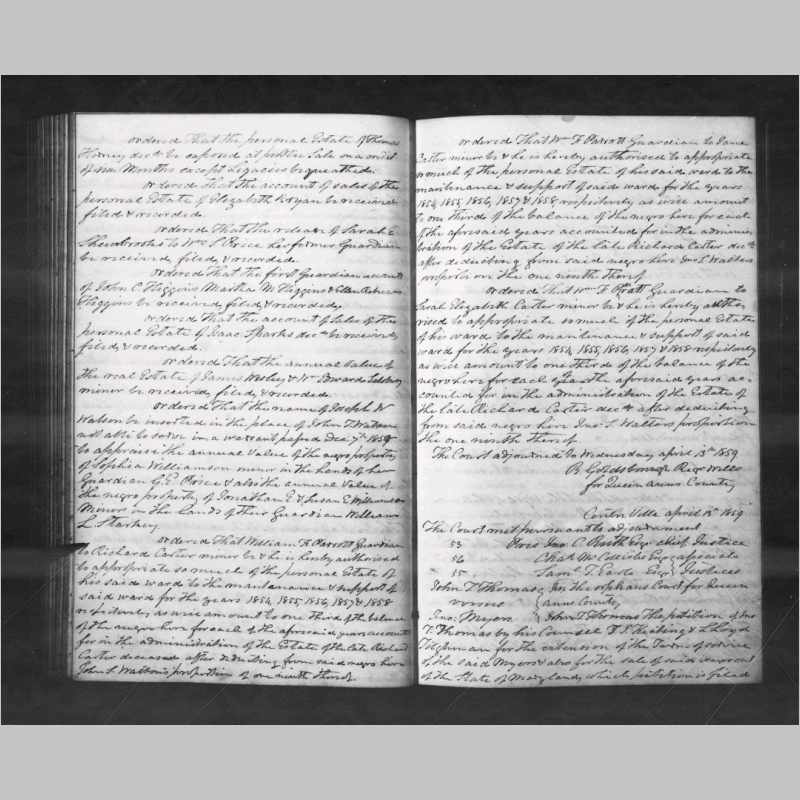 ordered That the personal Estate of Thomas
Horney decd be exposed at public Sale on a credit
of six Months except Legacies bequeathed.
ordered that the account of sales of the
personal Estate of Elizabeth Bryan be received
filed & recorded.
ordered That the release of Sarah E
to Wm S. Price her former Guardian
be received, filed, & recorded.
ordered That the first Guardian account
of John C Higgins Martha M Higgins &
Higgins be received, filed, & recorded,
ordered That the account of Sales of the
personal Estate of Isaac Sparks decd be received
filed, & recorded.
ordered That the annual Value of
the real Estate of James Wesley & Wm Edward
minor be received, filed, & recorded.
ordered That the name of Joseph W
Watson be inserted in the place of John T. Watson
not able to serve in a warrant passed Dec 7th 1858
to appraise the annual Value of the negro property
of Sophia Williamson minor in the hands of her
Guardian G. E. Price & also the annual Value of
the negro property of Jonathan E & Susan E Williamson
Minors in the hands of their Guardian William
L. Starkey
ordered That William F. Parrott Guardian
to Richard Carter minor be & he is hereby authorised
to appropriate so much of the personal Estate of
his said ward to the maintenance & support of
said ward for the years 1854, 1855, 1856, 1857 & 1858
respectively as will amount to one third of the balance
of the negro hire for each of the aforesaid years account
for in the administration of the Estate of the late Richard
Carter deceased after deducting from said negro hire
John S. Watson's proportion of one ninth thereof
ordered That Wm F Parrott Guardian to Jane
Carter minor be & he is hereby authorised to appropriate
so much of the personal Estate of his said ward to the
maintenance & support of said ward for the years
1854, 1855, 1856, 1857 & 1858 respectively as will amount
to one third of the balance of the negro hire for each
of the aforesaid years accounted for in the adminis-
tration of the Estate of the late Richard Carter decd
after deducting from said negro hire Jno S. Watters
proportion the one ninth thereof
ordered That Wm F Pratt Guardian to
Sarah Elizabeth Carter minor be & he is hereby autho-
rised to appropriate so much of the personal Estate
of his ward to the maintenance & support of said
ward for the years 1854, 1855, 1856, 1857 & 1858 respectively
as will amount to one third of the balance of the
negro hire for each of the aforesaid years ac-
counted for in the administration of the Estate of
the late Richard Carter decd & after deducting
from said negro hire Jno. S. Watters proportion
the one ninth thereof
The Court adjourned to Wednesday april 13th 1859
B Goldsborough Regr Wills
for Queen Anns County
Centre Ville april 13th 1859
The Court met pursuant to adjournment
53 Pres Jno C. Ruth Esqr chief Justice
56 Chas McCollister Esqr associate
15 Saml. T. Earle Esqr Justices
John T Thomas In the orphans Court for Queen
versus anns County
Jno: Myers John T. Thomas The petition of Jno
T. Thomas by his Counsel & Lloyd
Tilghman for the extension of the Term of service
of the said Myers & also for the sale of said negro out
of the State of Maryland, which petition is filed